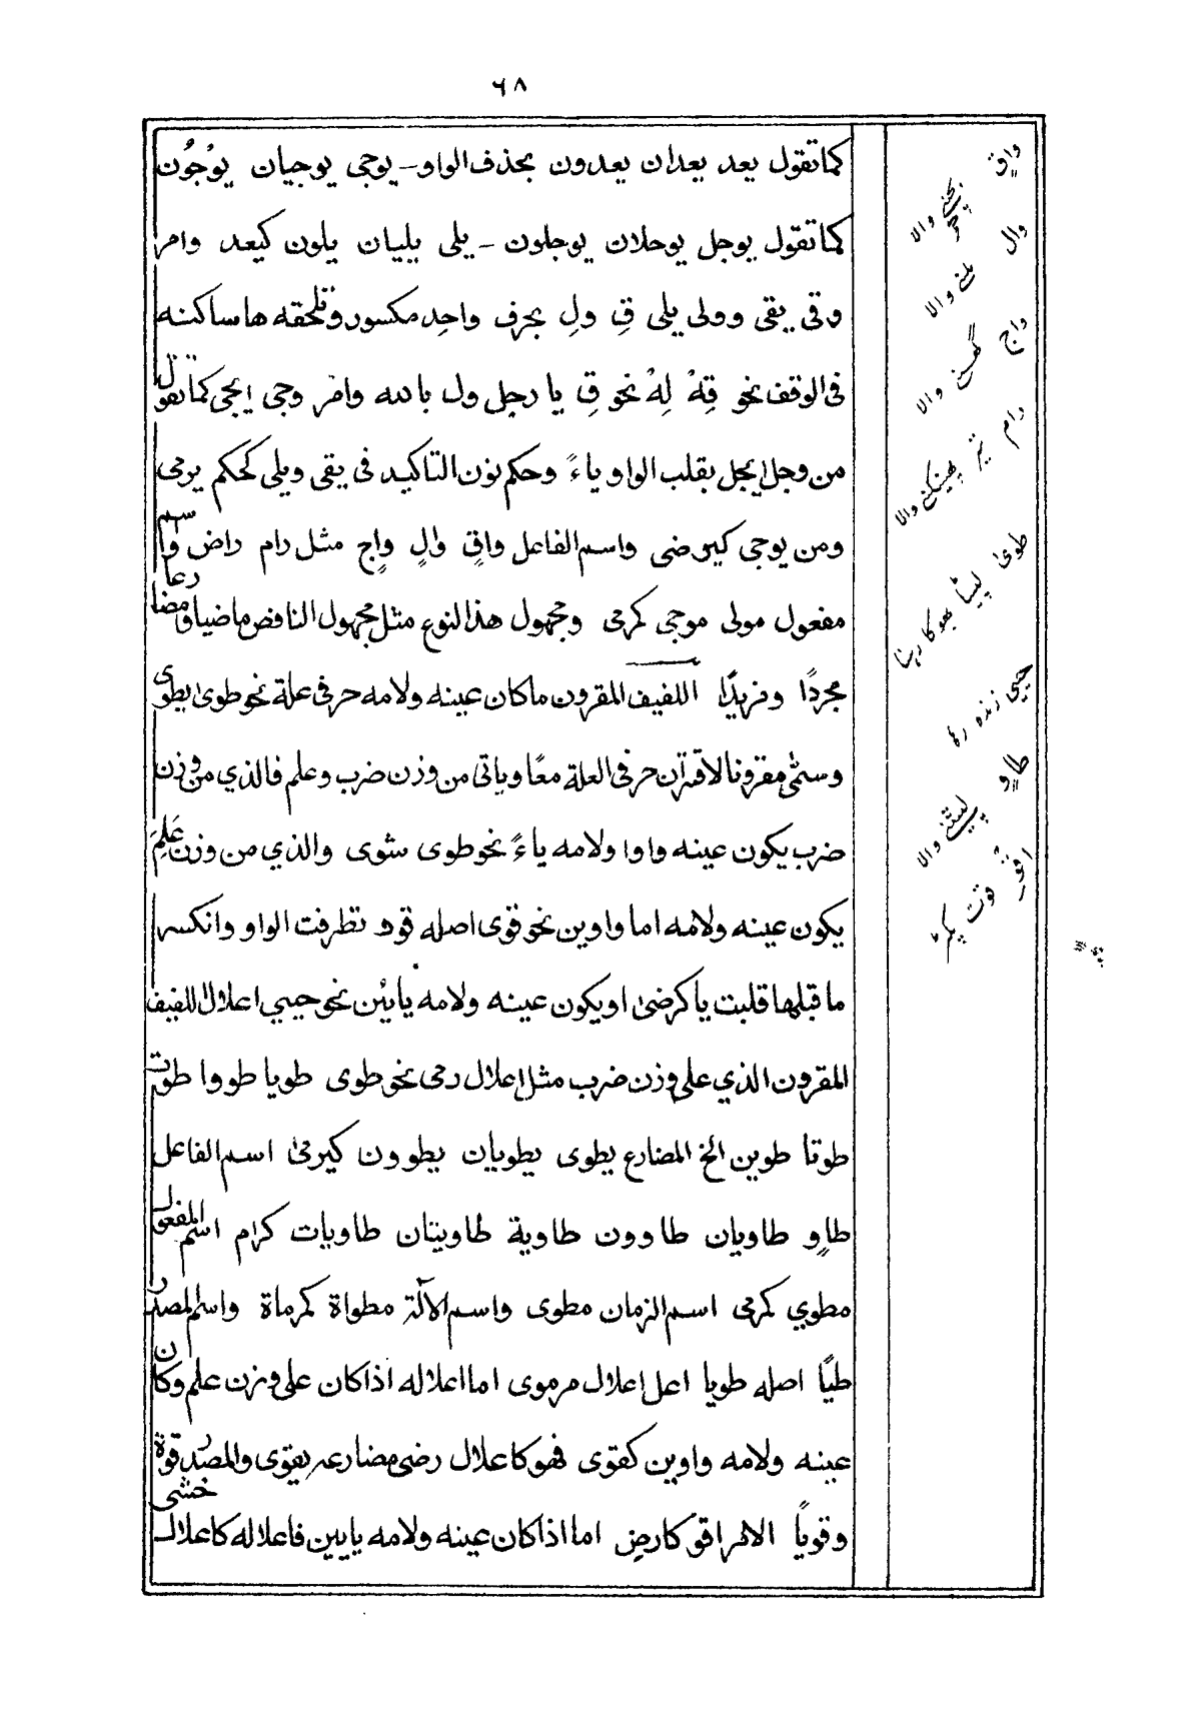 ٦٨
كما تقول يعد يعدان يعدون بحذف الواو ـ يوجى يوجيان يوْجُون
كما تقول يوجل يوجلان يوجلون ـ يلى يليان يلون كيعد وامر
وقى يقى وولى يلى قِ ولِ بحرف واحد مكسور وتلحقه ها ساكنه
فى الوقف نحو قِهْ لِهْ نحو قِ يا رجل ول بالله وامر وجى ايجى كما تقول
من وجل ايجل بقلب الواو ياءً وحكم نون التاكيد فى يقى ويلى كحكم يرمى
ومن يوجى كيرضى واسم الفاعل واقٍ والٍ واجٍ مثل رام راض واسم
مفعول مولى موجى كرمى ومجهول هذا النوع مثل مجهول الناقص ماضيا ومضارعا
مجردًا ومزيدًا اللفيف المقرون ما كان عينه ولامه حرفى علة نحو طوىٰ يطوى
وسمّى مقرونا لاقتران حرفى العلة معًا وياتى من وزن ضرب وعلم فالذي من وزن
ضرب يكون عينه واوا ولامه ياءً نحو طوى شوى والذي من وزن عَلِمَ
يكون عينه ولامه اما واوين نحو قوى اصله قوو تظرفت الواو وانكسر
ما قبلها قلبت يا كرضىٰ او يكون عينه ولامه يايئن نحو حيي اعلال اللفيف
المقرون الذي على وزن ضرب مثل اعلال رمى نحو طوى طويا طووا طوت
طوتا طوين الخ المضارع يطوى يطويان يطوون كيرمىٰ اسم الفاعل
طاوٍ طاويان طاوون طاوية طاويتان طاويات كرام اسم المفعول
مطوي كرمى اسم الزمان مطوى واسم الآلة مطواة كمرماة واسم المصدر
طيًّا اصله طويا اعل اعلال مرموى اما اعلاله اذا كان على وزن علم وكان
عينه ولامه واوين كقوى فهو كاعلال رضى مضارعه يقوى والمصدر قوة
وقويًا الامر اقو كارض اما اذا كان عينه ولامه يايين فاعلاله كاعلال خشى
واقٍ
بچنے والا
وال
ملنے والا
واج
گھسنے والا
رام تیر پھینکنے والا
طوىٰ لپیٹا بھوکا رہنا
حیی زندہ رہا
طاوٍ
لپیٹنے والا
اقو قوت پکڑ